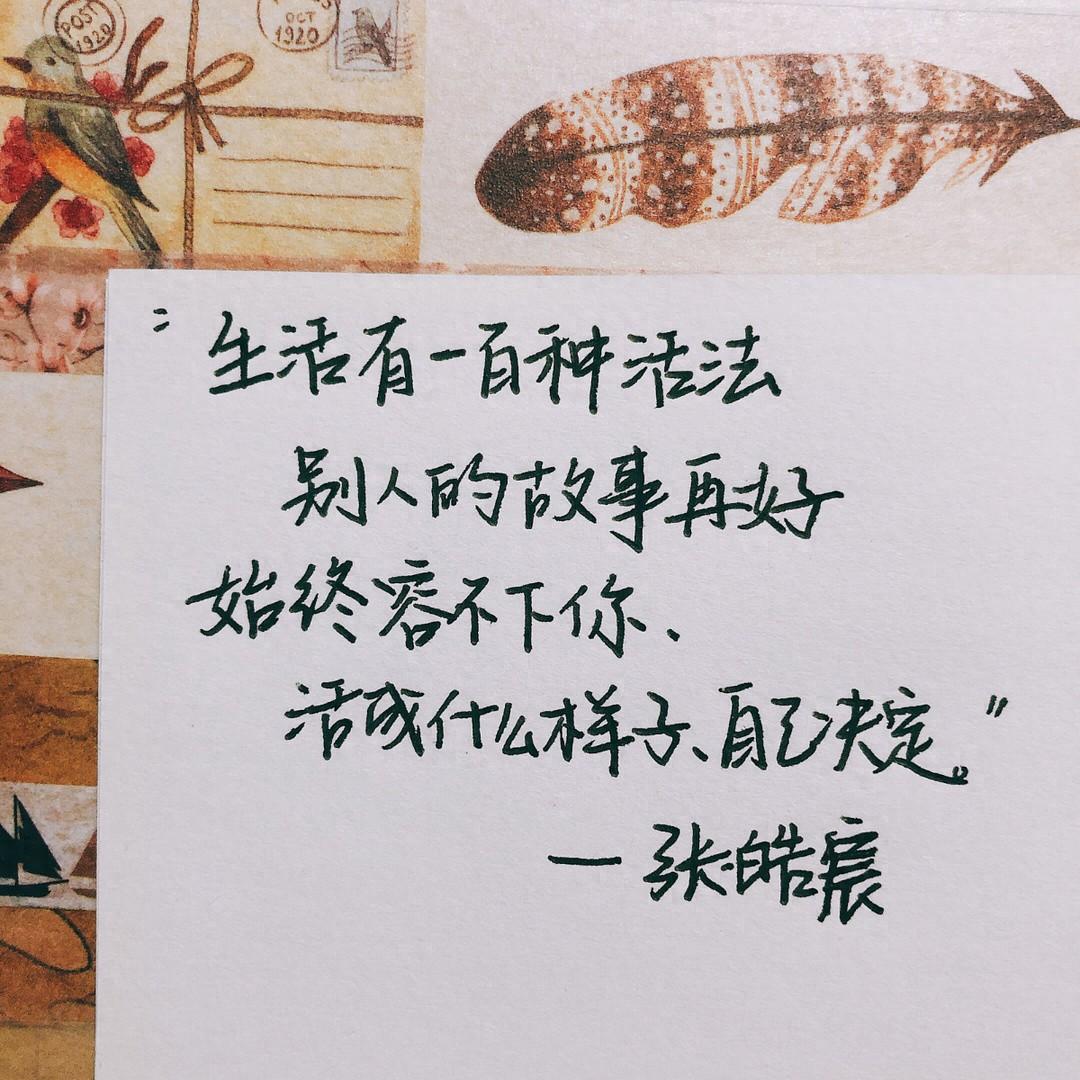 POST
1920
OCT
1920
“生活有一百种活法
别人的故事再好
始终容不下你、
活成什么样子、自己决定。”
—张皓宸